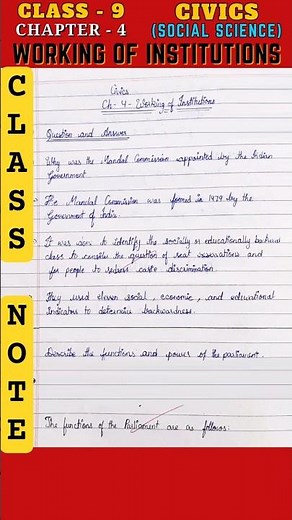 CLASS - 9 CIVICS
CHAPTER - 4 (SOCIAL SCIENCE)
WORKING OF INSTITUTIONS
CLASS NOTE
Civics
Ch- 4 - Working of Institutions
Question and Answer
Why was the Mandal Commission appointed by the Indian
Government
The Mandal Commission was formed in 1979 by the
Government of India.
It was to identify the socially or educationally backward
class to consider the question of seat reservations and
for people to caste discrimination.
They used eleven social, economic, and educational
Indicators to determine backwardness.
Describe the functions and power of the parliament.
The functions of the Parliament are as follows: